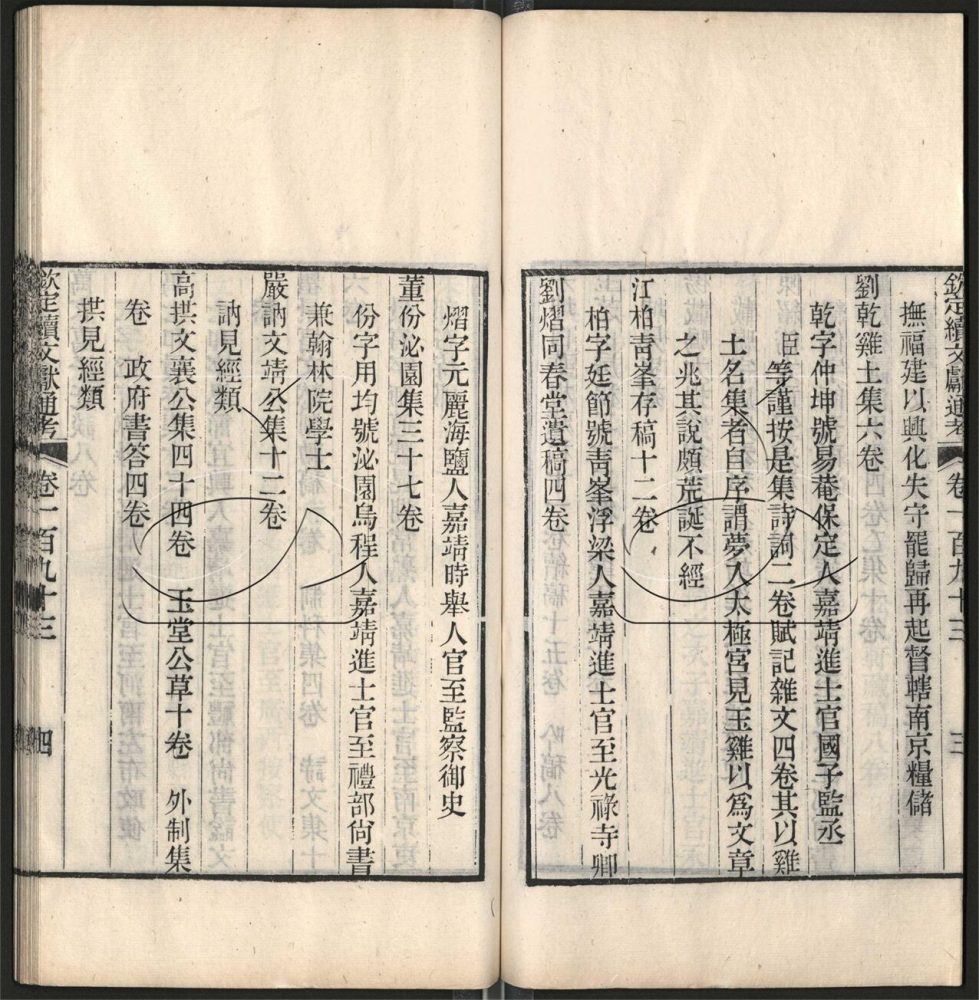 欽定續文獻通考 卷一百九十三 三
撫福建以興化失守罷歸再起督轄南京糧儲
劉乾雞土集六卷
乾字仲坤號易菴保定人嘉靖進士官國子監丞
臣等謹按是集詩詞二卷賦記雜文四卷其以雞
土名集者自序謂夢入太極宮見玉雞以爲文章
之兆其說頗荒誕不經
江柏青峯存稿十二卷
柏字廷節號青峯浮梁人嘉靖進士官至光祿寺卿
劉熠同春堂遺稿四卷
熠字元麗海鹽人嘉靖時舉人官至監察御史
董份泌園集三十七卷
份字用均號泌園烏程人嘉靖進士官至禮部尙書
兼翰林院學士
嚴訥文靖公集十二卷
訥見經類
高拱文襄公集四十四卷 玉堂公草十卷 外制集
卷 政府書答四卷
拱見經類
欽定續文獻通考 卷一百九十三 四